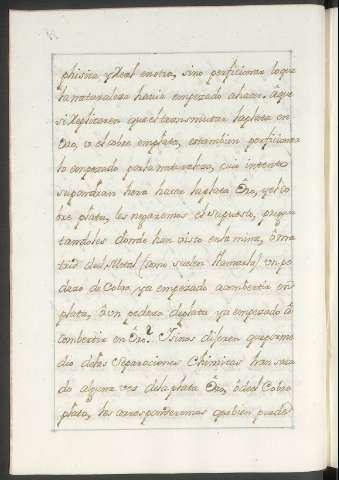 phisica y Real enotra, sino perficionar loque
la naturaleza havia empezado ahacer. Aque
si Replicaren que el transmutar laplata en
Oro, o el cobre emplata, estambien perficionar
lo empezado por la naturaleza, cuio intento
supondrian hera hacer la plata Oro, y el co
bre plata, les negaremos el Supuesto, pregun
tandoles donde han visto en la mina, ô ma
triz del Metal (como suelen llamarla) un pe
dazo de Cobre, ya empezado aombertir en
plata, ô un pedazo deplata ya empezado â
combertir en Oro? Y si nos dijeren que por me
dio de las Separaciones Chimicas han saca
do alguna vez de la plata Oro, ô del Cobre
plata, les corresponderemos que bien puede